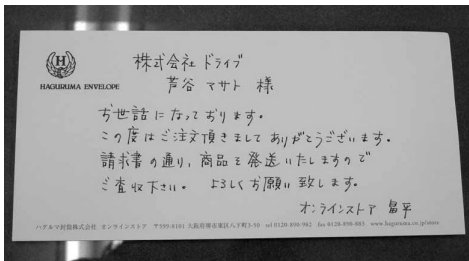 HAGURUMA ENVELOPE
株式会社 ドライブ
芦谷 マサト 様
お世話になっております。
この度はご注文頂きましてありがとうございます。
請求書の通り、商品を発送いたしますので
ご査収下さい。 よろしくお願い致します。
オンラインストア 畠平
ハグルマ封筒株式会社 オンラインストア 〒599-8101 大阪府堺市東区八下町3-50 tel 0120-890-982 fax 0120-890-883 www.haguruma.co.jp/store